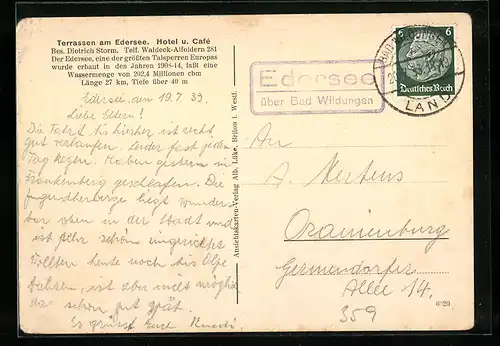 Terrassen am Edersee. Hotel u. Café
Bes. Dietrich Storm. Telf. Waldeck-Alfoldern 281
Der Edersee, eine der größten Talsperren Europas
wurde erbaut in den Jahren 1908-14, faßt eine
Wassermenge von 202,4 Millionen cbm
Länge 27 km, Tiefe über 40 m
Edersee, am 19.7.39.
Liebe Eltern!
Die Fahrt bis hierher ist recht
gut verlaufen. Leider fast jeden
Tag Regen. Haben gestern in
Frankenberg geschlafen. Die
Jugendherberge liegt wunder-
bar oben in der Stadt und
ist sehr schön eingerichtet
Wollten heute noch bis Olpe
fahren, ist aber nicht möglich
da schon zu spät.
Es grüsst Euch Rudi.
Ansichtskarten-Verlag Alb. Lüke, Brilon i. Westf.
Edersee
über Bad Wildungen
6 6
Deutsches Reich
LAND
An
A. Mertens
Oranienburg
Germendorfer
Allee 14.
359
6929